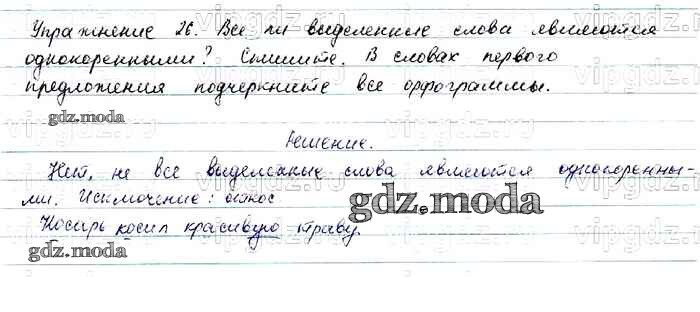 Упражнение 26. Все ли выделенные слова являются
однокоренными? Спишите. В словах первого
предложения подчеркните все орфограммы.
gdz.moda
Решение.
Нет, не все выделенные слова являются однокоренны-
ми. Исключение: откос.
gdz.moda
Косарь косил красивую траву.
gdz.moda